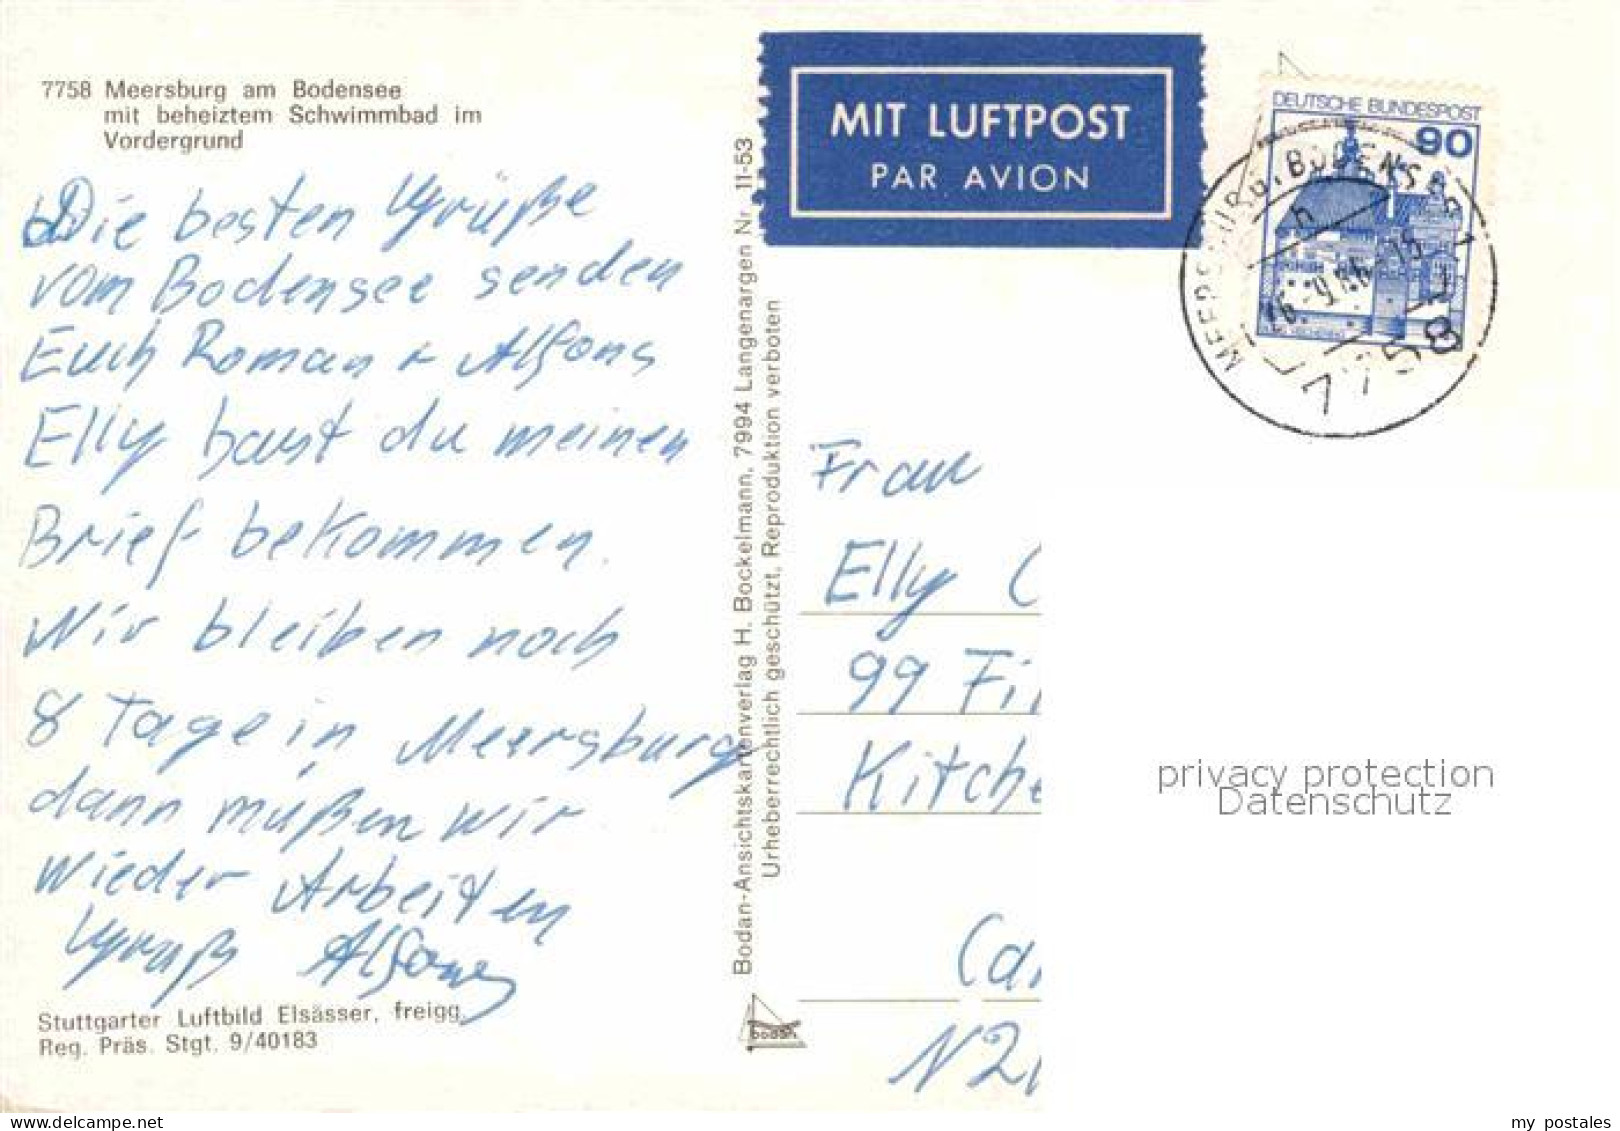 7758 Meersburg am Bodensee
mit beheiztem Schwimmbad im
Vordergrund
Die besten Grüße
vom Bodensee senden
Euch Roman + Alfons
Elly hast du meinen
Brief bekommen.
Wir bleiben noch
8 Tage in Meersburg
dann müßen wir
wieder Arbeiten
Gruß Alfons
Stuttgarter Luftbild Elsässer, freigg.
Reg. Präs. Stgt. 9/40183
Bodan-Ansichtskartenverlag H. Bockelmann, 7994 Langenargen Nr. 11-53
Urheberrechtlich geschützt, Reproduktion verboten
bodan
MIT LUFTPOST
PAR AVION
DEUTSCHE BUNDESPOST
90
MEERSBURG, BODENSEE 1
h
16.-9.86-18
7758
Frau
Elly (
99 Fi
Kitche
Ca
N2
privacy protection
Datenschutz
my postales